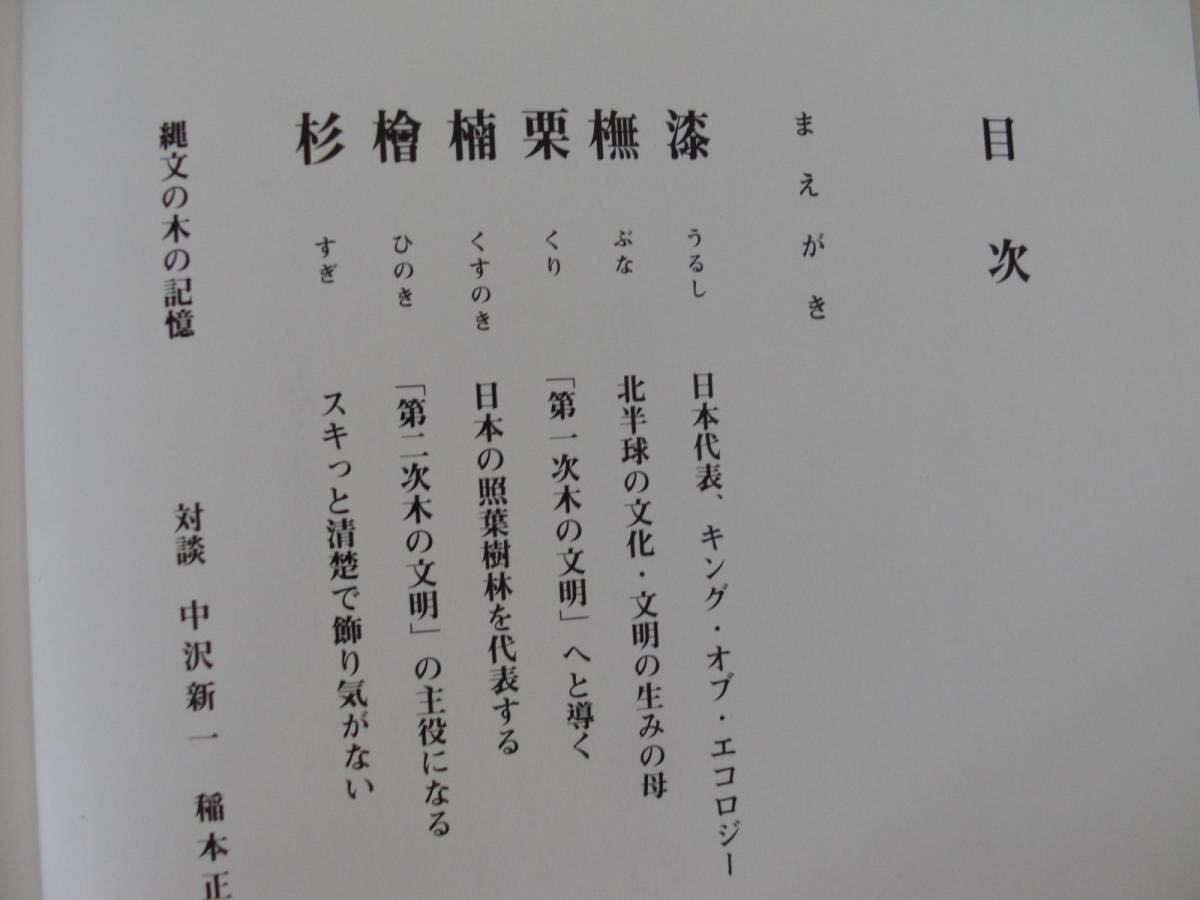 目次
まえがき
漆 うるし 日本代表、キング・オブ・エコロジー
橅 ぶな 北半球の文化・文明の生みの母
栗 くり 「第一次木の文明」へと導く
楠 くすのき 日本の照葉樹林を代表する
檜 ひのき 「第二次木の文明」の主役になる
杉 すぎ スキっと清楚で飾り気がない
縄文の木の記憶 対談 中沢新一 稲本正